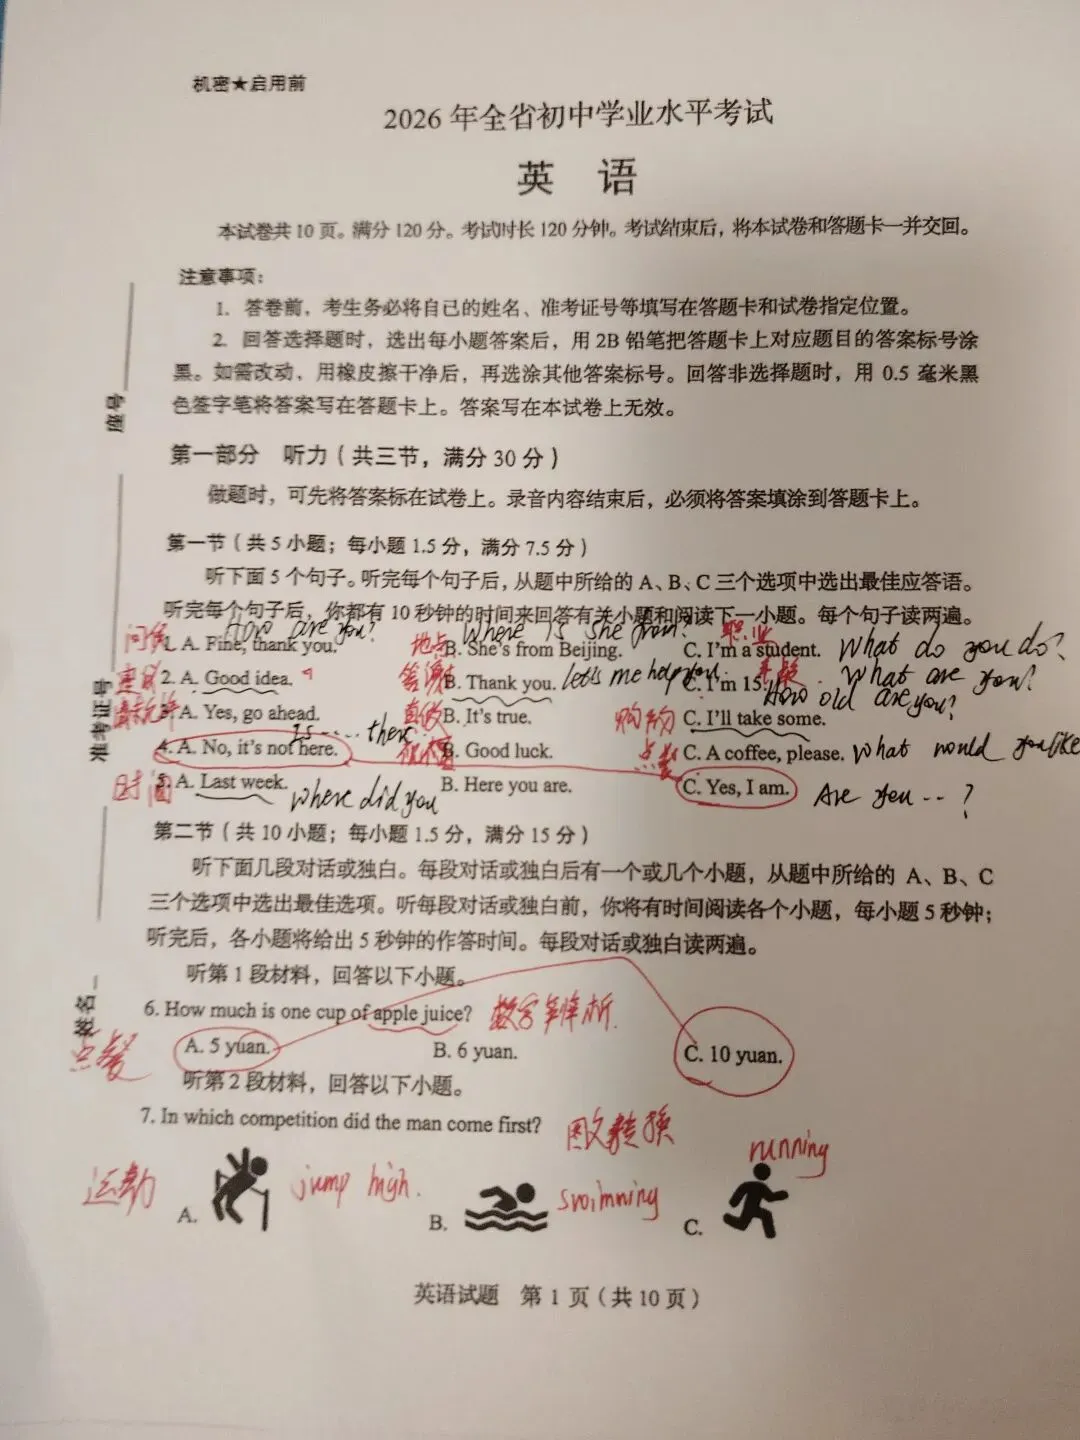 机密★启用前
2026 年全省初中学业水平考试
英 语
本试卷共 10 页。满分 120 分。考试时长 120 分钟。考试结束后，将本试卷和答题卡一并交回。
注意事项：
1. 答卷前，考生务必将自己的姓名、准考证号等填写在答题卡和试卷指定位置。
2. 回答选择题时，选出每小题答案后，用 2B 铅笔把答题卡上对应题目的答案标号涂
黑。如需改动，用橡皮擦干净后，再选涂其他答案标号。回答非选择题时，用 0.5 毫米黑
色签字笔将答案写在答题卡上。答案写在本试卷上无效。
座号
第一部分 听力（共三节，满分 30 分）
做题时，可先将答案标在试卷上。录音内容结束后，必须将答案填涂到答题卡上。
第一节（共 5 小题；每小题 1.5 分，满分 7.5 分）
听下面 5 个句子。听完每个句子后，从题中所给的 A、B、C 三个选项中选出最佳应答语。
听完每个句子后，你都有 10 秒钟的时间来回答有关小题和阅读下一小题。每个句子读两遍。
How are you? Where is she from? 职业
问候 1. A. Fine, thank you. 地点 B. She's from Beijing. C. I'm a student. What do you do?
建议 2. A. Good idea. 答谢 B. Thank you. let's me help you. C. I'm 15. What are you?
How old are you?
请求允许 3. A. Yes, go ahead. B. It's true. 购物 C. I'll take some.
Is .... there
4. A. No, it's not here. 祝福 B. Good luck. 点餐 C. A coffee, please. What would you like
时间 5. A. Last week. Where did you B. Here you are. C. Yes, I am. Are you ... ?
准考证号
第二节（共 10 小题；每小题 1.5 分，满分 15 分）
听下面几段对话或独白。每段对话或独白后有一个或几个小题，从题中所给的 A、B、C
三个选项中选出最佳选项。听每段对话或独白前，你将有时间阅读各个小题，每小题 5 秒钟；
听完后，各小题将给出 5 秒钟的作答时间。每段对话或独白读两遍。
听第 1 段材料，回答以下小题。
姓名
6. How much is one cup of apple juice? 数字辨析.
点餐 A. 5 yuan. B. 6 yuan. C. 10 yuan.
听第 2 段材料，回答以下小题。
7. In which competition did the man come first? 图文转换
运动 A. jump high. B. swimming C. running
英语试题 第 1 页（共 10 页）